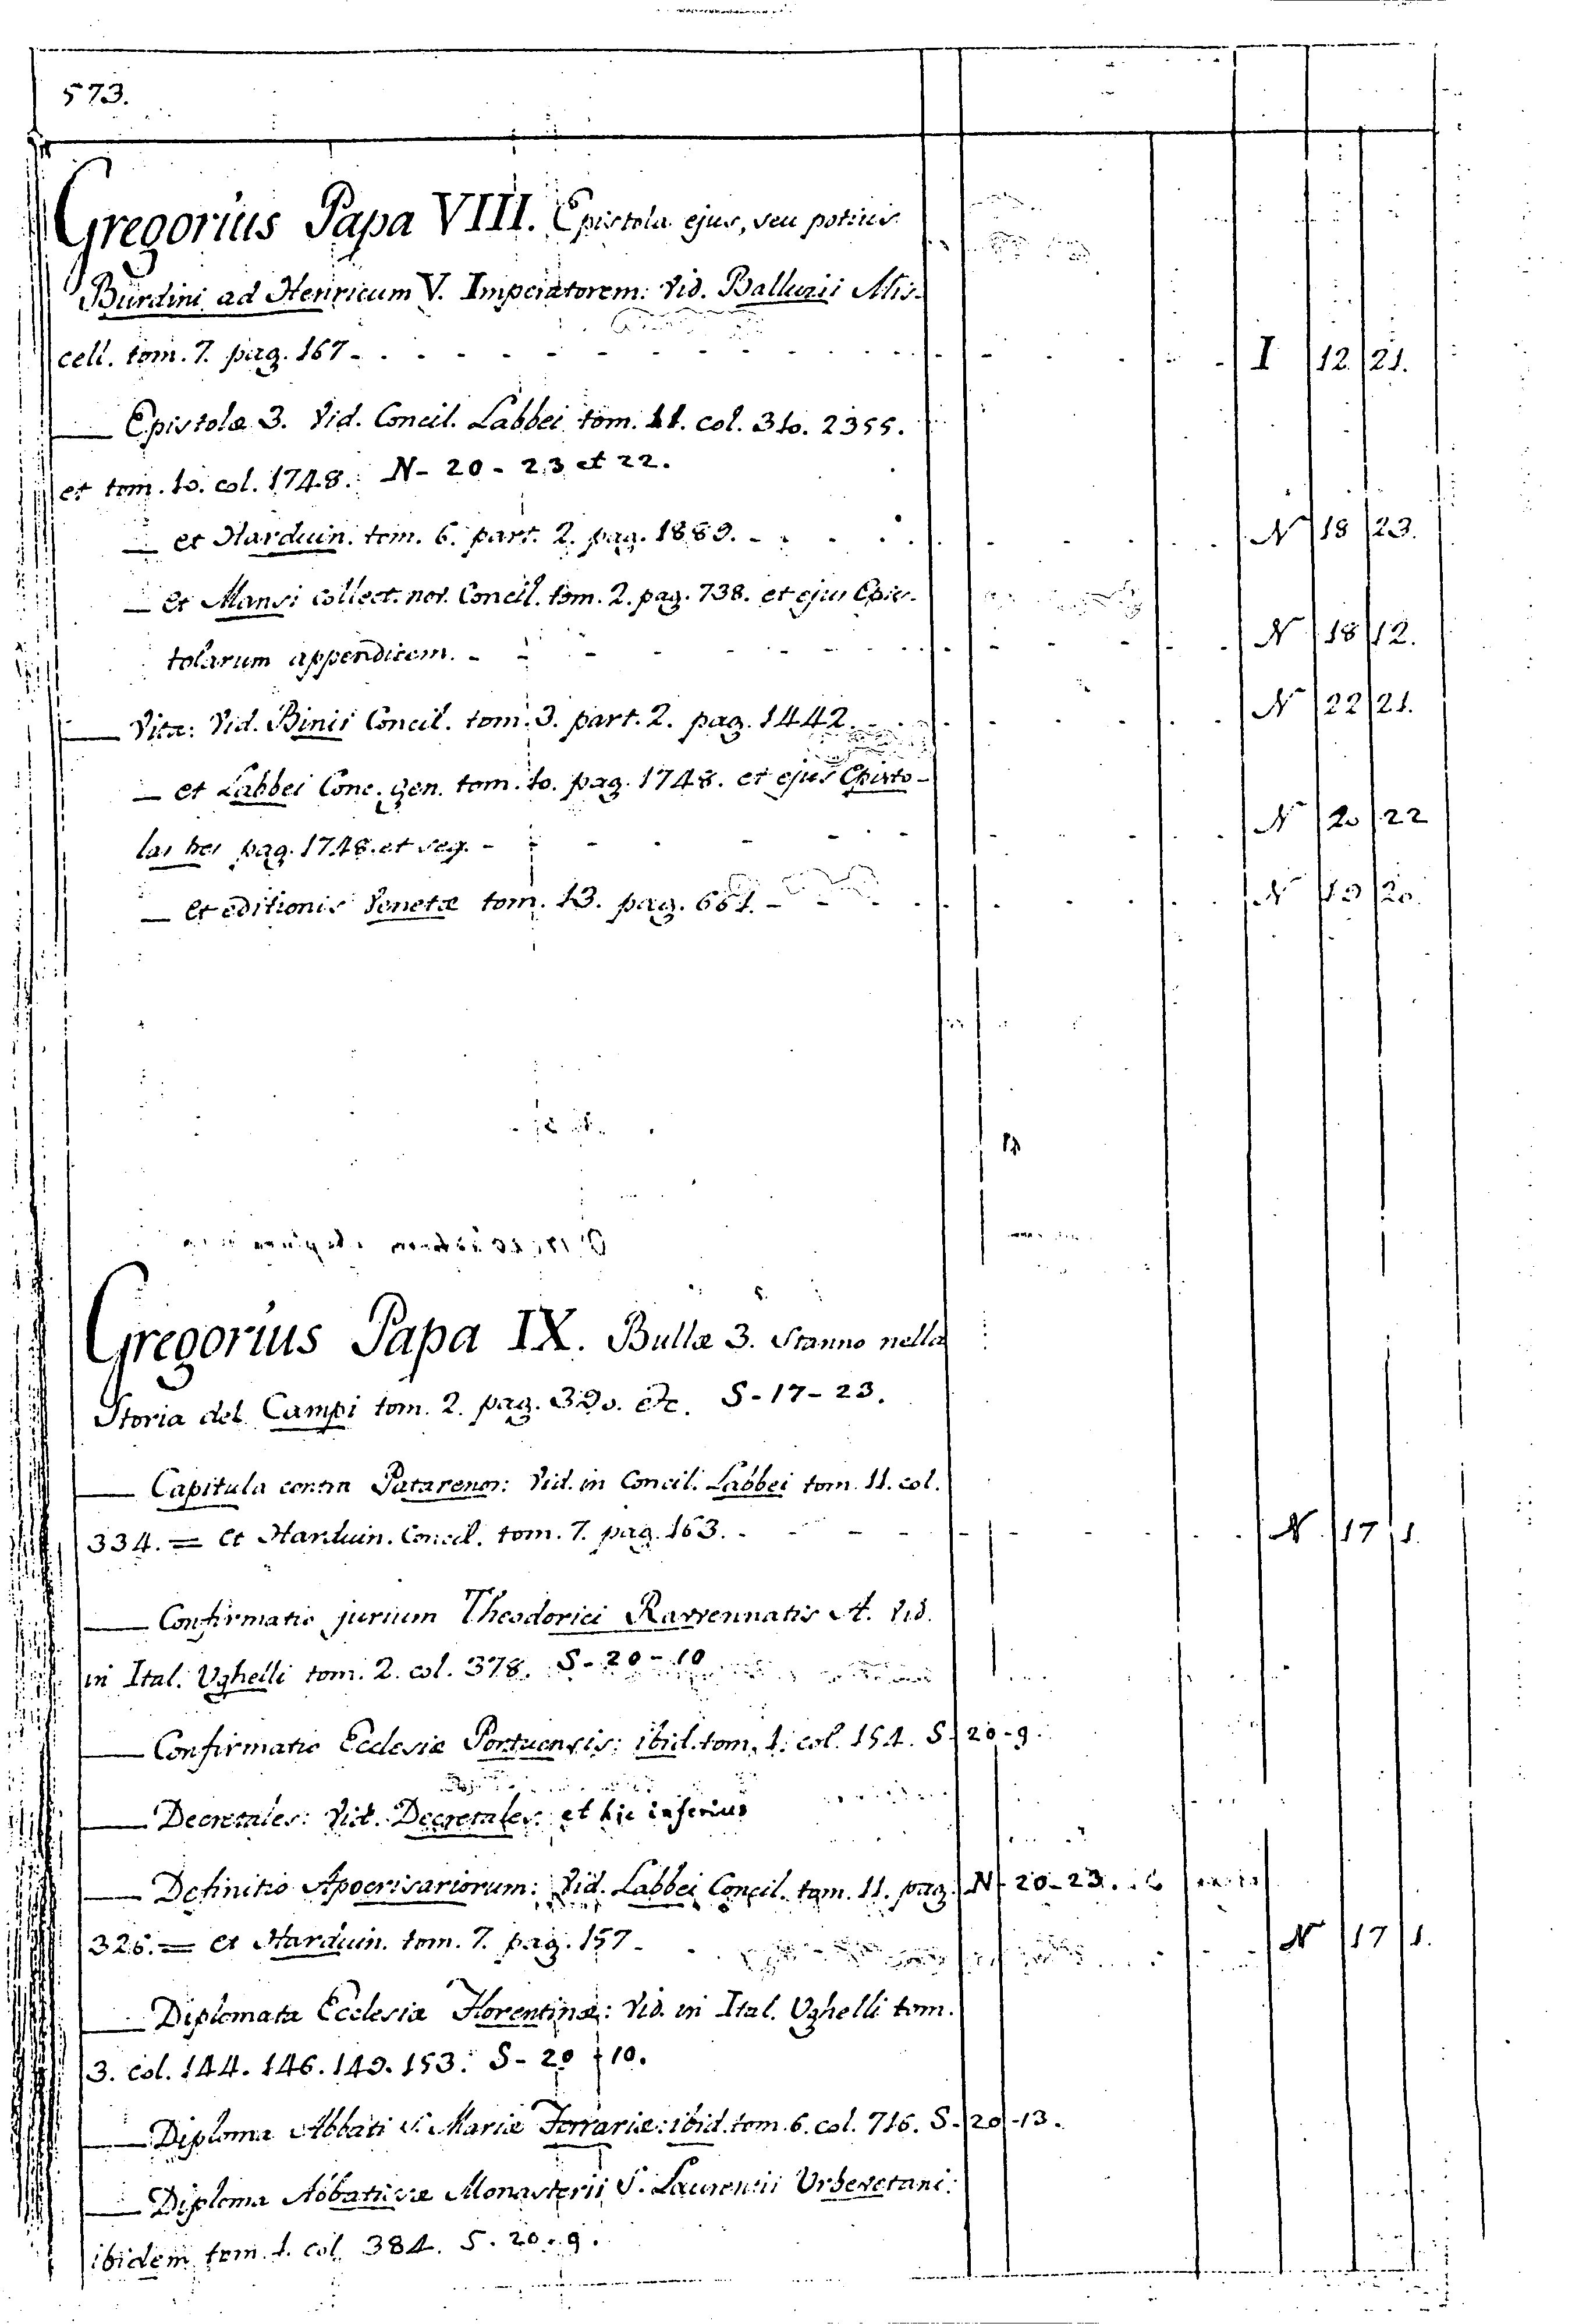 573.
Gregorius Papa VIII. Epistola ejus, seu potius
Burdini ad Henricum V. Imperatorem: Vid. Balluzii Mis-
cell. tom. 7. pag. 167 - I 12 21.
— Epistolæ 3. Vid. Concil. Labbei tom. 11. col. 310. 2355.
et tom. 10. col. 1748. N - 20 - 23 et 22.
— et Harduin. tom. 6. part. 2. pag. 1889. - N 18 23.
— et Mansi collect. nov. Concil. tom. 2. pag. 738. et ejus Epis-
tolarum appendicem. - N 18 12.
— Vita: Vid. Binii Concil. tom. 3. part. 2. pag. 1442. N 22 21.
— et Labbei Conc. gen. tom. 10. pag. 1748. et ejus Episto-
las tres pag. 1748. et seq. - N 20 22
— et editionis Venetæ tom. 13. pag. 661. - N 19 20.
Gregorius Papa IX. Bullæ 3. Stanno nella
Storia del Campi tom. 2. pag. 390. etc. S - 17 - 23.
— Capitula contra Patarenos: Vid. in Concil. Labbei tom. 11. col.
334. = et Harduin. Concil. tom. 7. pag. 163. - N 17 1.
— Confirmatio jurium Theodorici Ravennatis A. Vid.
in Ital. Ughelli tom. 2. col. 378. S - 20 - 10
— Confirmatio Ecclesiæ Portuensis: ibid. tom. 1. col. 154. S - 20 - 9.
— Decretales: Vid. Decretales. et hic inferius
— Definitio Apocrisariorum: Vid. Labbei Concil. tom. 11. pag. N - 20 - 23.
326. = et Harduin. tom. 7. pag. 157 - N 17 1.
— Diplomata Ecclesiæ Florentinæ: Vid. in Ital. Ughelli tom.
3. col. 144. 146. 149. 153. S - 20 - 10.
— Diploma Abbati S. Mariæ Ferrariæ: ibid. tom. 6. col. 716. S - 20 - 13.
— Diploma Abbatissæ Monasterii S. Laurentii Urbevetani:
ibidem tom. 1. col. 384. S. 20 - 9.